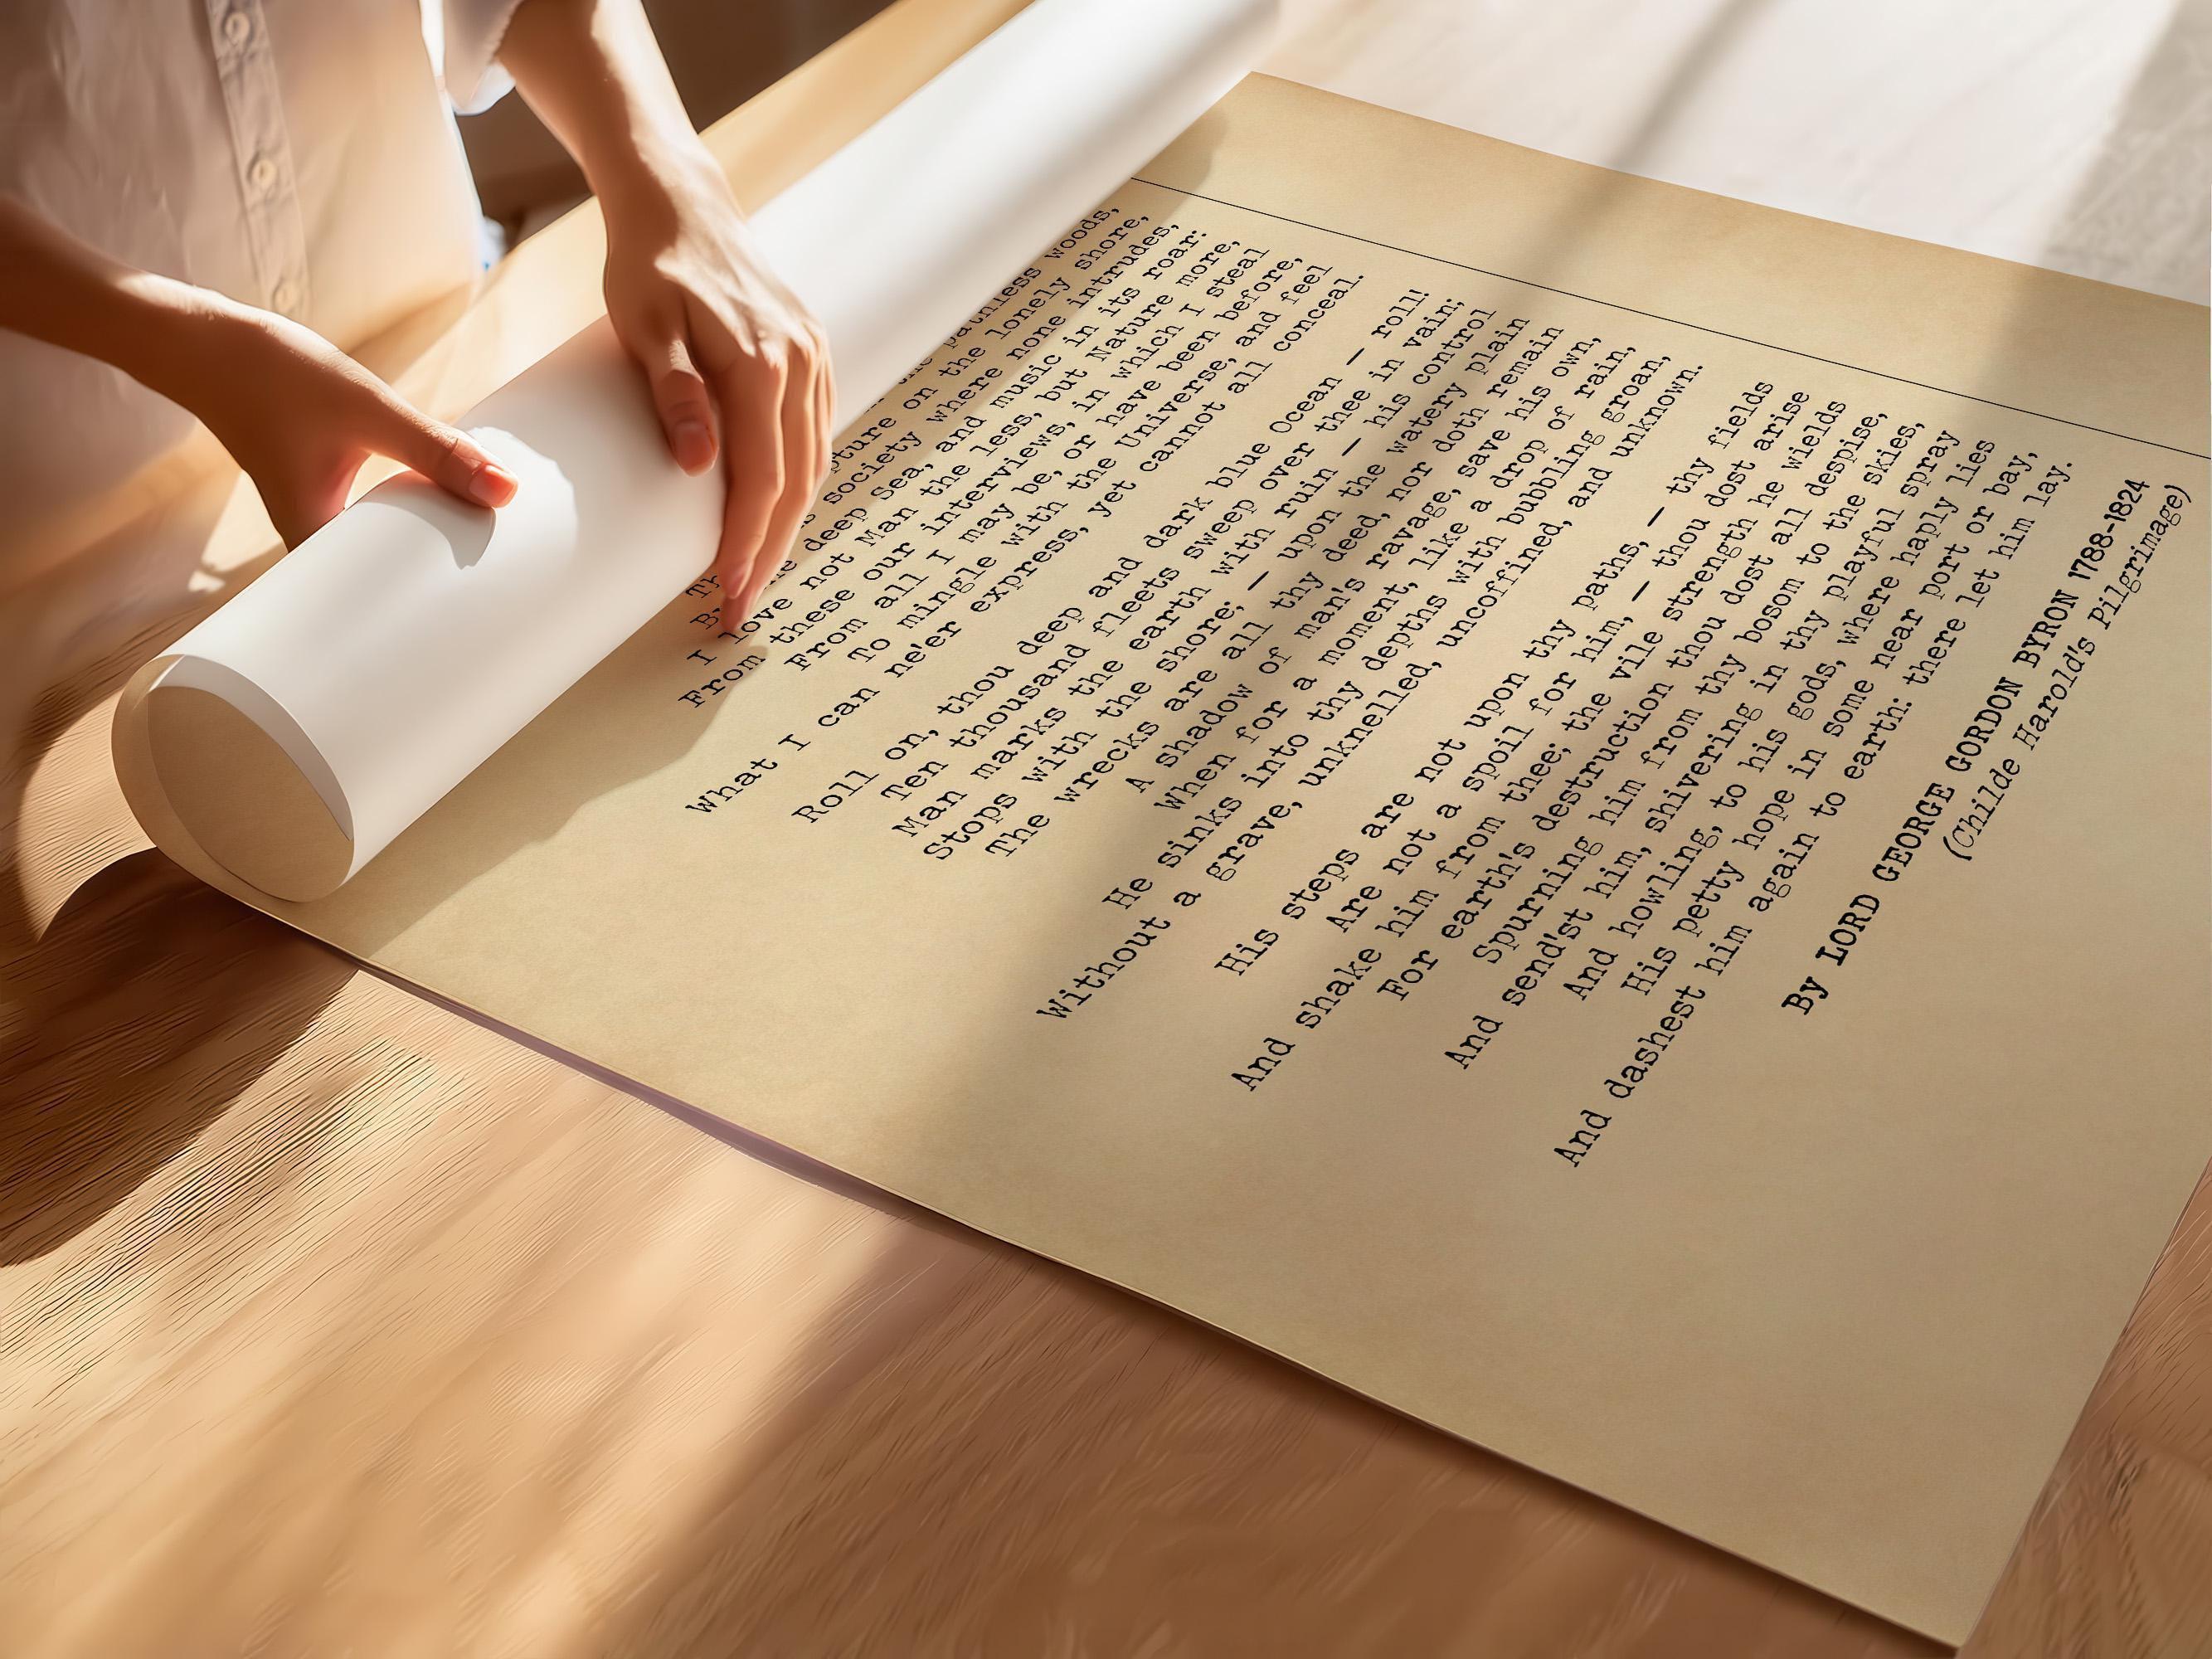 the pathless woods,
pture on the lonely shore,
Th s society where none intrudes,
B he deep Sea, and music in its roar:
I love not Man the less, but Nature more,
From these our interviews, in which I steal
From all I may be, or have been before,
To mingle with the Universe, and feel
What I can ne'er express, yet cannot all conceal.
Roll on, thou deep and dark blue Ocean — roll!
Ten thousand fleets sweep over thee in vain;
Man marks the earth with ruin — his control
Stops with the shore; — upon the watery plain
The wrecks are all thy deed, nor doth remain
A shadow of man's ravage, save his own,
When for a moment, like a drop of rain,
He sinks into thy depths with bubbling groan,
Without a grave, unknelled, uncoffined, and unknown.
His steps are not upon thy paths, — thy fields
Are not a spoil for him, — thou dost arise
And shake him from thee; the vile strength he wields
For earth's destruction thou dost all despise,
Spurning him from thy bosom to the skies,
And send'st him, shivering in thy playful spray
And howling, to his gods, where haply lies
His petty hope in some near port or bay,
And dashest him again to earth: there let him lay.
By LORD GEORGE GORDON BYRON 1788-1824
(Childe Harold's Pilgrimage)